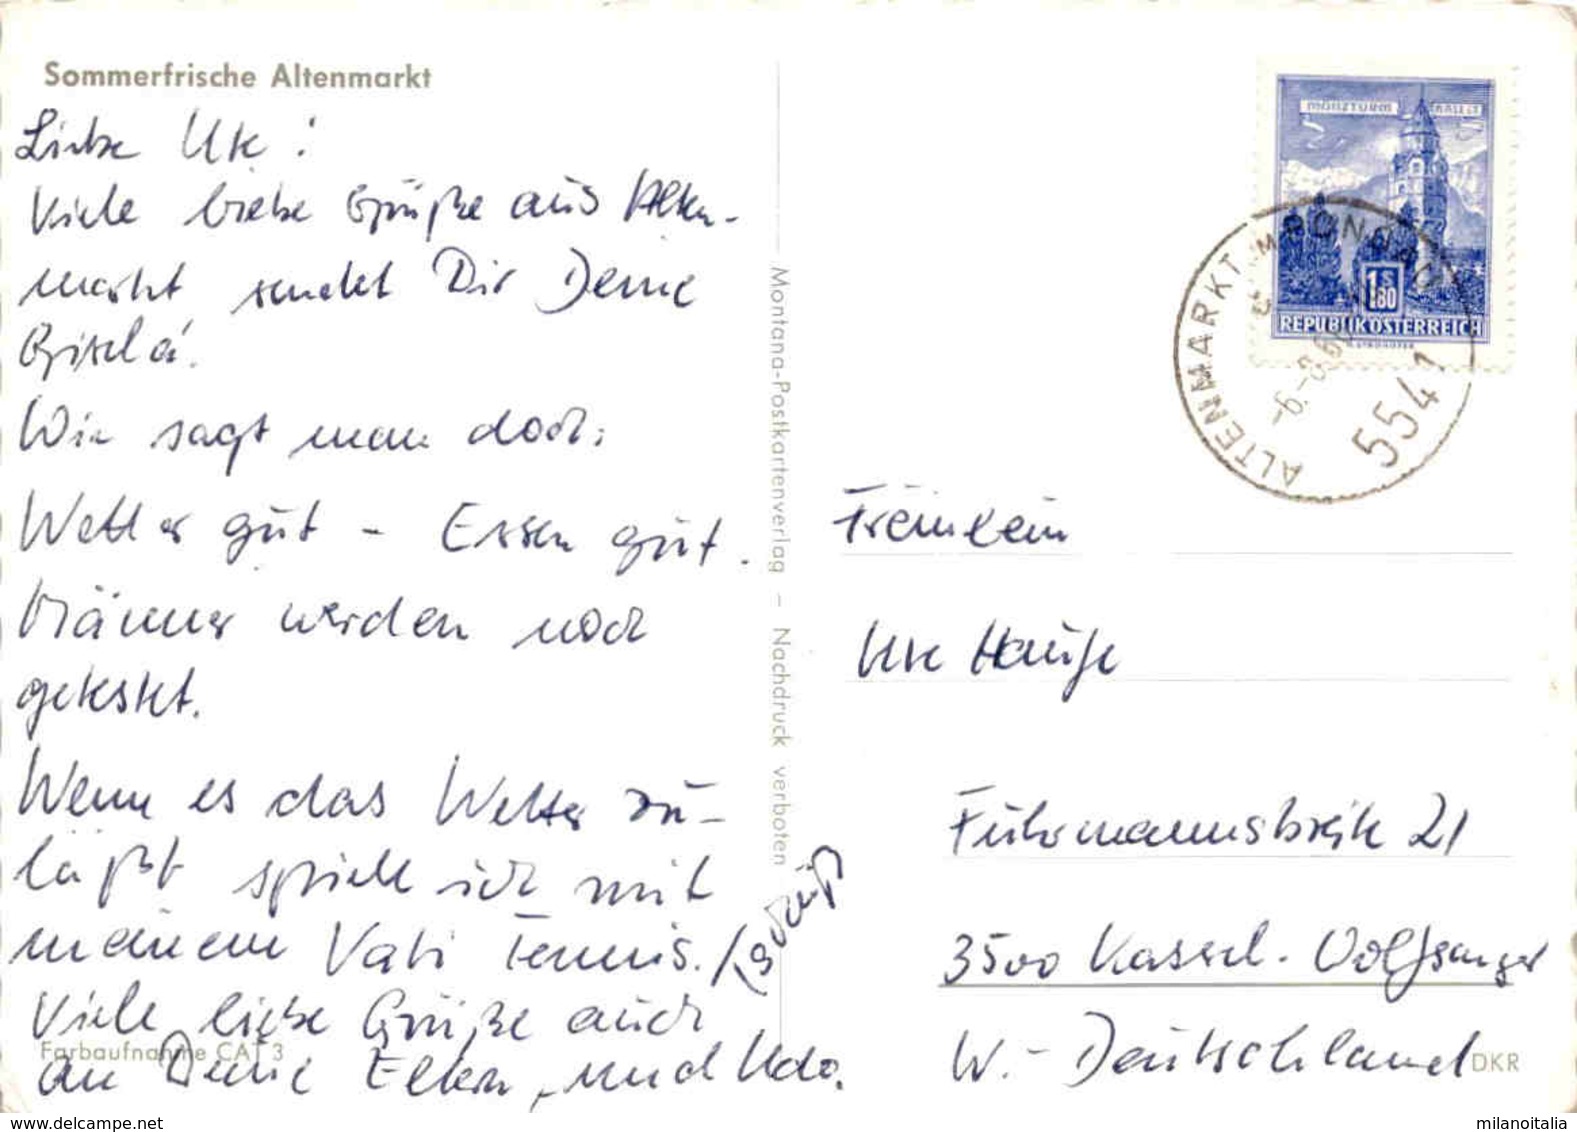 Sommerfrische Altenmarkt
Liebe Ute!
Viele liebe Grüße aus Alten-
markt sendet Dir Deine
Gisela.
Wie sagt man doch:
Wetter gut - Essen gut.
Männer werden noch
getestet.
Wenn es das Wetter zu-
läßt spiele ich mit
meinem Vati Tennis.
Viele liebe Grüße auch
an Deine Eltern, und Udo.
Farbaufnahme CAT 3
Montana-Postkartenverlag - Nachdruck verboten
MÜNZTURM
REPUBLIK ÖSTERREICH
1 S 80
ALTENMARKT IM PONGAU
5541
Fräulein
Ute
Fuhrmannsbreite 21
3500 Kassel-Wolfsanger
W.-Deutschland
DKR
www.delcampe.net
milanoitalia